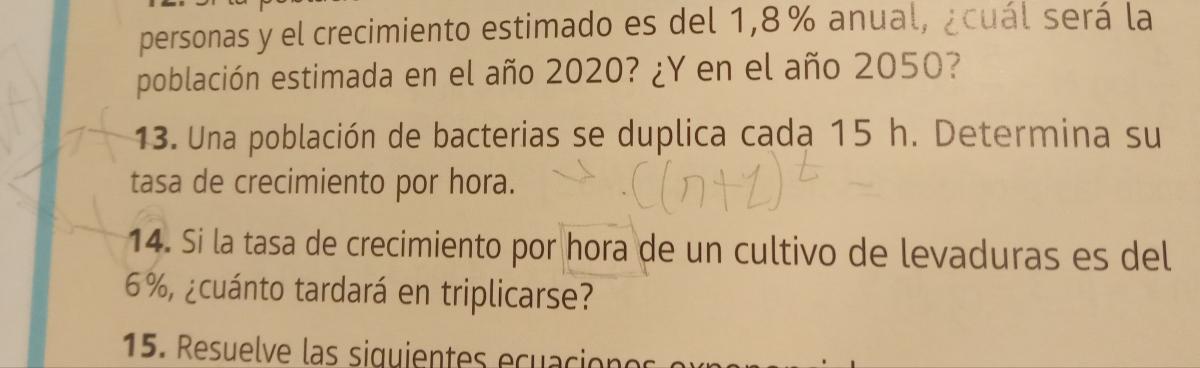 personas y el crecimiento estimado es del 1,8 % anual, ¿cuál será la
población estimada en el año 2020? ¿Y en el año 2050?
13. Una población de bacterias se duplica cada 15 h. Determina su
tasa de crecimiento por hora. → .C(n+1)^t =
14. Si la tasa de crecimiento por hora de un cultivo de levaduras es del
6 %, ¿cuánto tardará en triplicarse?
15. Resuelve las siguientes ecuaciones